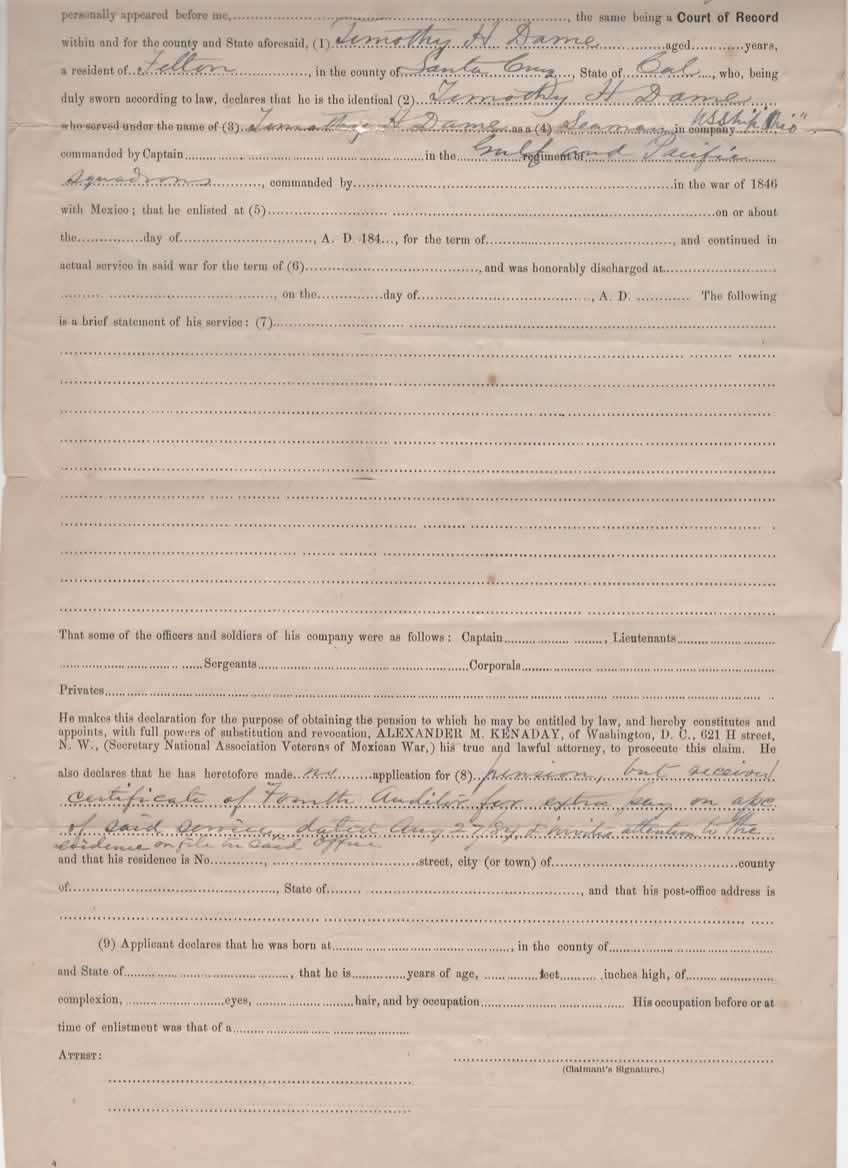 personally appeared before me,........................, the same being a Court of Record
within and for the county and State aforesaid, (1) Timothy H Dame aged..........years,
a resident of Felton, in the county of Santa Cruz, State of Cal, who, being
duly sworn according to law, declares that he is the identical (2) Timothy H Dame
who served under the name of (3) Timothy H Dame as a (4) Seaman in company USShip "Ohio"
commanded by Captain........................in the Gulf and Pacific regiment of
squadrons, commanded by........................in the war of 1846
with Mexico; that he enlisted at (5)........................on or about
the............day of........................, A. D. 184..., for the term of........................, and continued in
actual service in said war for the term of (6)........................, and was honorably discharged at........................
........................, on the............day of........................, A. D. ............ The following
is a brief statement of his service: (7)........................
That some of the officers and soldiers of his company were as follows: Captain........................, Lieutenants........................
........................Sergeants........................Corporals........................
Privates........................
He makes this declaration for the purpose of obtaining the pension to which he may be entitled by law, and hereby constitutes and
appoints, with full powers of substitution and revocation, ALEXANDER M. KENADAY, of Washington, D. C., 621 H street,
N. W., (Secretary National Association Veterans of Mexican War,) his true and lawful attorney, to prosecute this claim. He
also declares that he has heretofore made no application for (8) pension, but received
certificate of Fourth Auditor for extra pay on a/c
of said service, dated Aug 27/84 & invites attention to the
evidence on file in said office
and that his residence is No............, ........................street, city (or town) of........................county
of........................, State of........................, and that his post-office address is
(9) Applicant declares that he was born at........................, in the county of........................
and State of........................, that he is............years of age, ............feet............inches high, of........................
complexion, ........................eyes, ........................hair, and by occupation........................ His occupation before or at
time of enlistment was that of a........................
ATTEST:
(Claimant's Signature.)